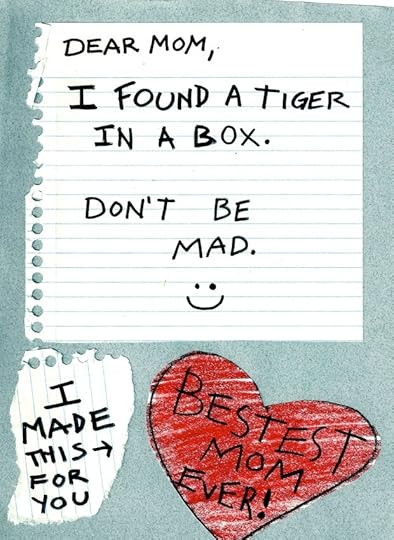 DEAR MOM,
I FOUND A TIGER
IN A BOX.
DON'T BE
MAD.
I
MADE
THIS →
FOR
YOU
BESTEST
MOM
EVER!